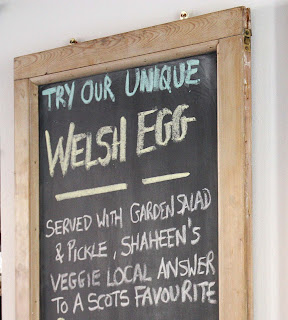 TRY OUR UNIQUE
WELSH EGG
SERVED WITH GARDEN SALAD
& PICKLE, SHAHEEN'S
VEGGIE LOCAL ANSWER
TO A SCOTS FAVOURITE